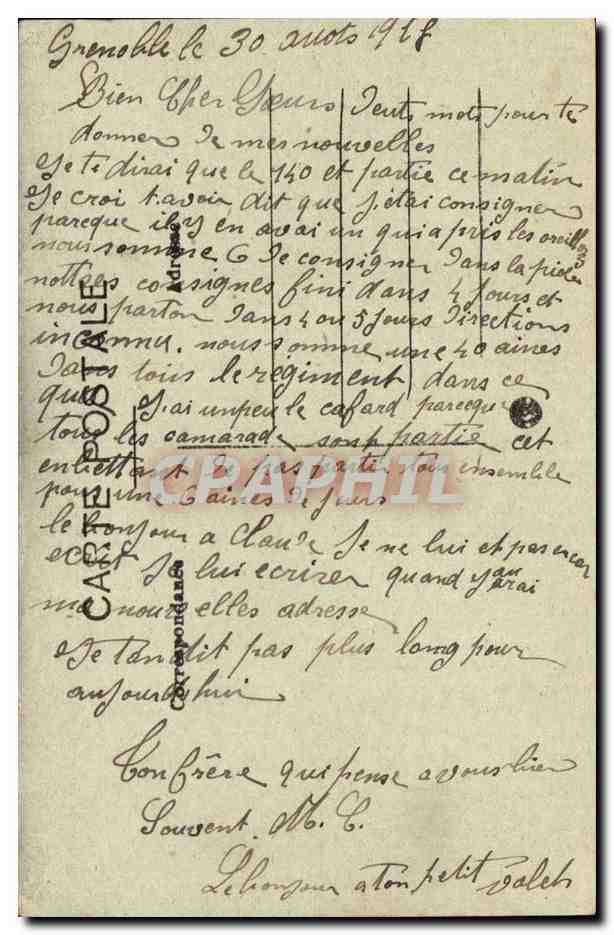 Grenoble le 30 auots 1917
Bien Cher Sœurs Deuts mots pour te
donner de mes nouvelles
Je te dirai que le 140 et partie ce matin
Je croi t.avoir dit que j.étai consigner
pareque il y en avai un qui a pris les oreillons
nous somme 6 de consigner dans la pieder
nottres consignes fini dans 4 jours et
nous parton dans 4 ou 5 jours Directions
inconnu. nous somme une 40 aines
dans tous le regiment dans ce
que J.ai un peu le cafard pareque
tous les camarade sont partie cet
enbettant de pas partir tous ensemble
pour une 6 aines de jours
le bonjour a Claude Je ne lui et pas encor
ecrit Je lui ecrirer quand j aurai
ma nouvelles adresse
Je tan dit pas plus long pour
aujourdhui
Ton frère qui pense a vous bien
Souvent. M. C.
Le bonjour a ton petit
CARTE POSTALE
Correspondance
Adresse
CPAPHIL